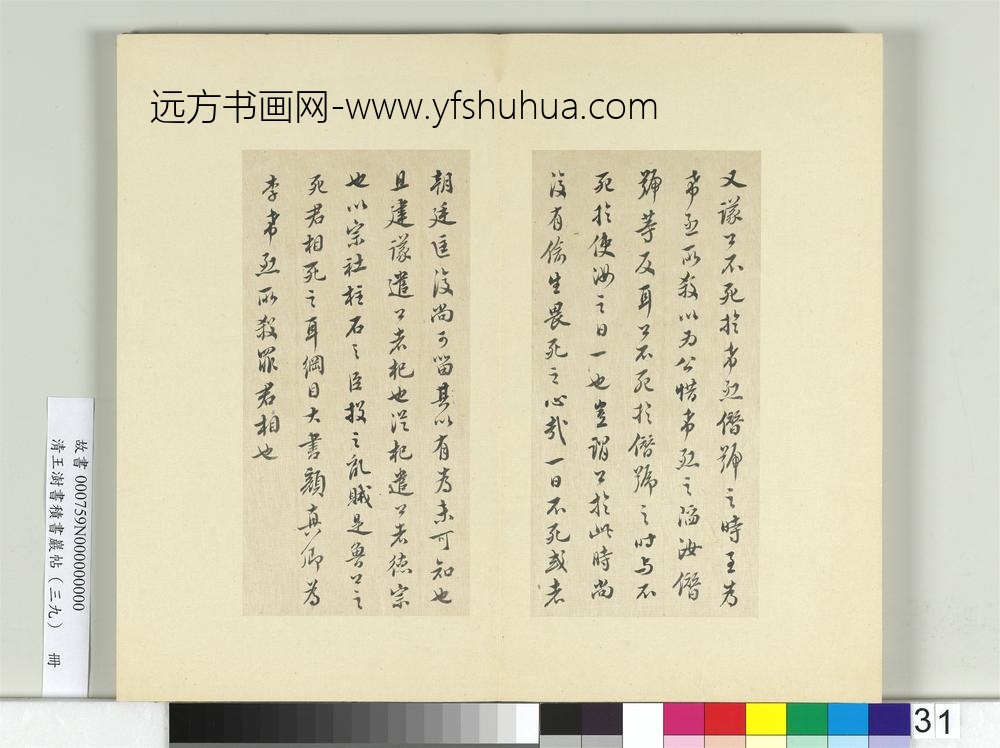 远方书画网-www.yfshuhua.com
又议公不死於希烈僭號之時王为
希烈所殺以为公惜希烈之陷汝僭
號等反耳公不死於僭號之时与不
死於使汝之日一也豈謂公於此時尚
復有偷生畏死之心哉一日不死或者
朝廷匡復尚可留其以有为未可知也
且建議遣公者杞也從杞遣公者德宗
也以宗社柱石之臣投之亂賊是魯公之
死君相死之耳綱目大書顏真卿为
李希烈所殺罪君相也
故書 000759N000000000
清王澍書積書巖帖(三九) 冊
31